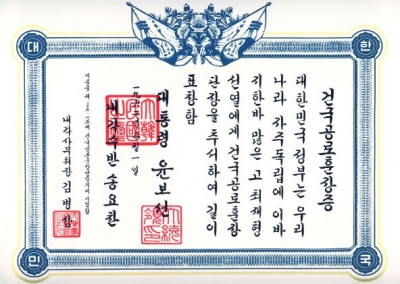 대한
민국
건국공로훈장증
대한민국정부는 우리
나라 자주독립에 이바
지한바 많은 고 최재형
선열에게 건국공로훈장
단장을 추서하여 길이
표창함
대통령 윤보선
내각수반 송요찬
내각사무처장 김병삼